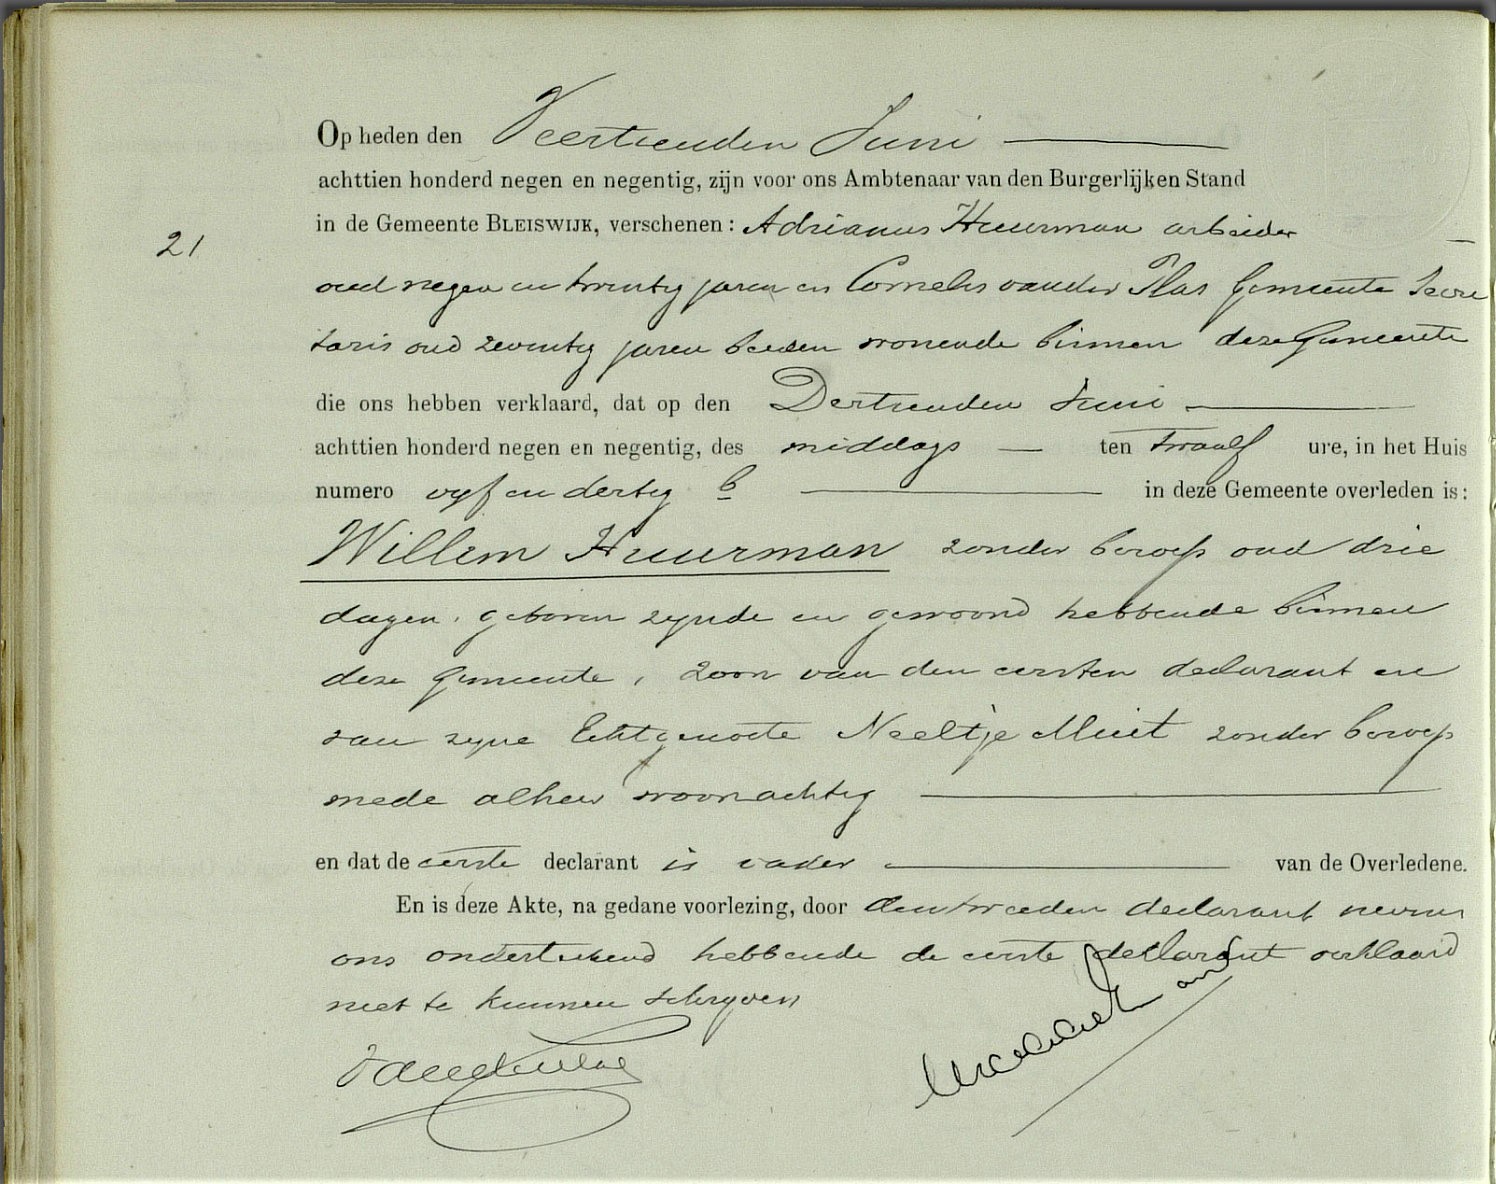 Op heden den Veertienden Juni
achttien honderd negen en negentig, zijn voor ons Ambtenaar van den Burgerlijken Stand
in de Gemeente BLEISWIJK, verschenen: Adrianus Huurman arbeider
21
oud negen en twintig jaren en Cornelis vander Plas Gemeente Secre
taris oud zeventig jaren beiden wonende binnen deze Gemeente
die ons hebben verklaard, dat op den Dertienden Juni
achttien honderd negen en negentig, des middags ten twaalf ure, in het Huis
numero vyf en dertig b in deze Gemeente overleden is:
Willem Huurman zonder beroep oud drie
dagen. geboren zynde en gewoond hebbende binnen
deze Gemeente, zoon van den eersten declarant en
van zyne Echtgenoote Neeltje Muit zonder beroep
mede alhier woonachtig
en dat de eerste declarant is vader van de Overledene.
En is deze Akte, na gedane voorlezing, door den tweeden declarant nevens
ons onderteekend hebbende de eerste declarant verklaard
niet te kunnen schryven